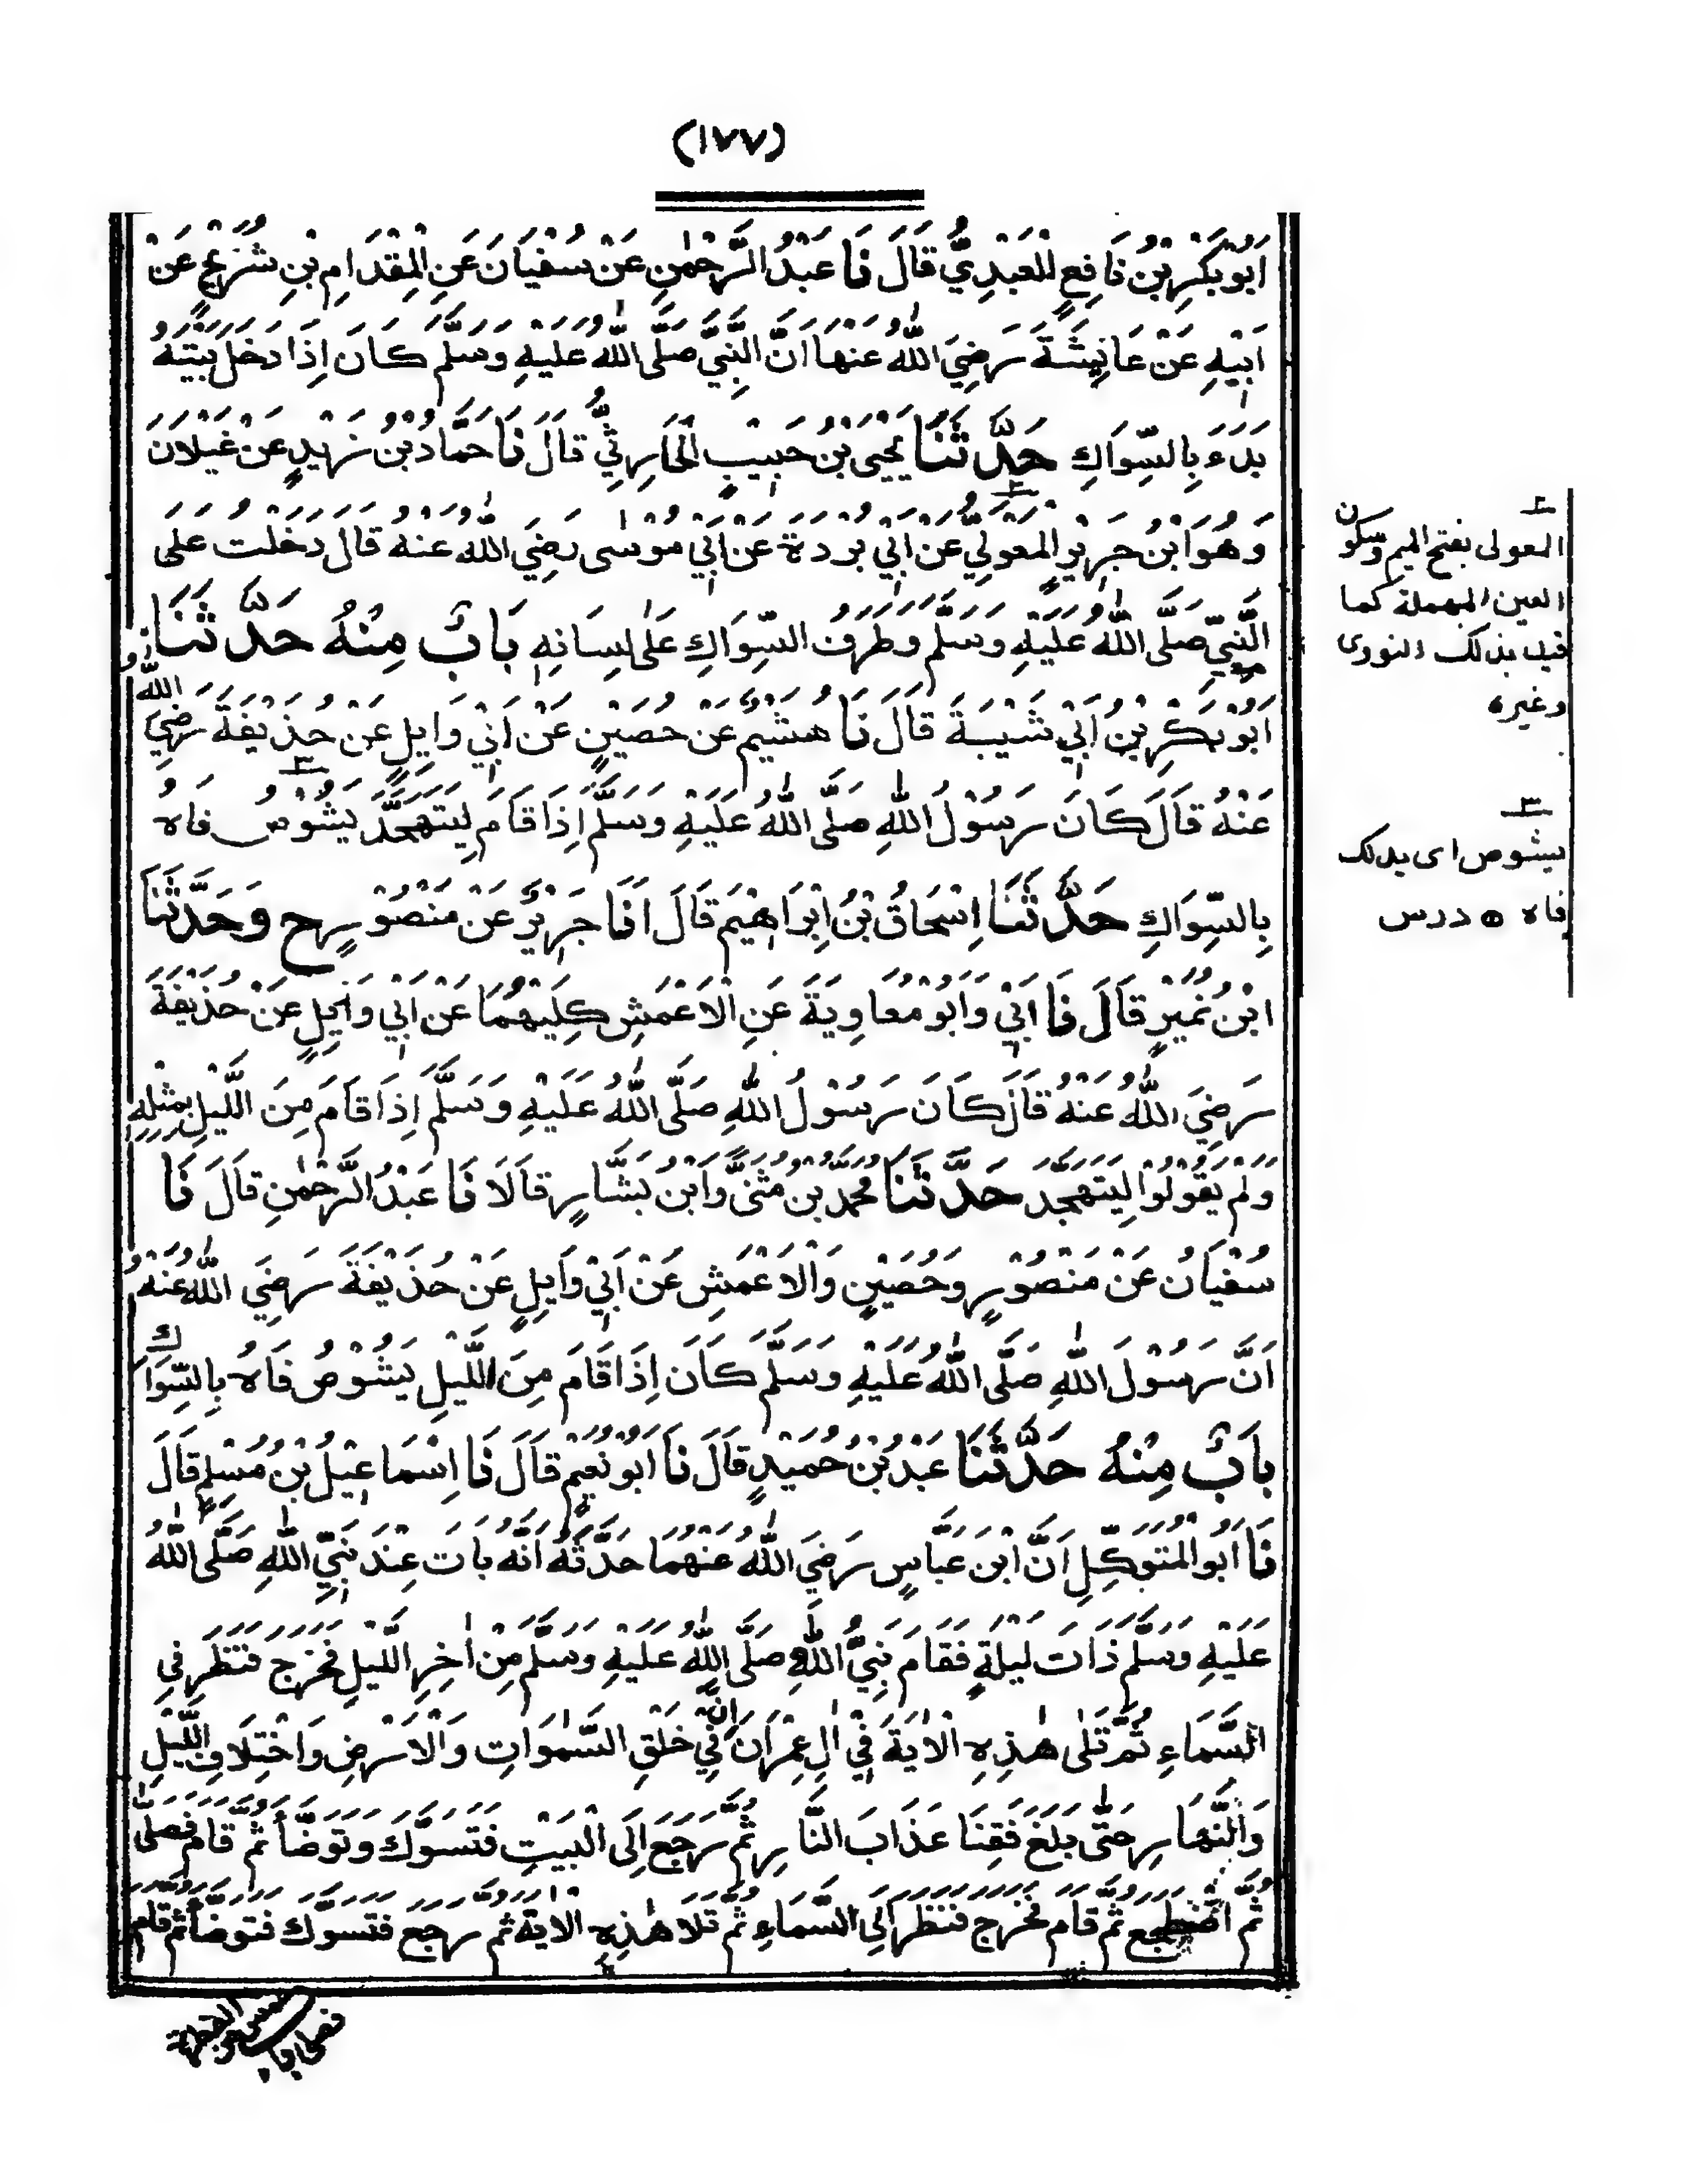 (١٧٧)
اَبُوْبَكْرِ بْنُ نَافِعٍ الْعَبْدِيُّ قَالَ نَا عَبْدُ الرَّحْمٰنِ عَنْ سُفْيَانَ عَنِ الْمِقْدَامِ بْنِ شُرَيْحٍ عَنْ
اَبِيْهِ عَنْ عَائِشَةَ رَضِيَ اللّٰهُ عَنْهَا اَنَّ النَّبِيَّ صَلَّى اللّٰهُ عَلَيْهِ وَسَلَّمَ كَانَ اِذَا دَخَلَ بَيْتَهُ
بَدَءَ بِالسِّوَاكِ حَدَّثَنَا يَحْيَى بْنُ حَبِيْبٍ الْحَارِثِيُّ قَالَ نَا حَمَّادُ بْنُ زَيْدٍ عَنْ غَيْلَانَ
وَهُوَ ابْنُ جَرِيْرٍ الْمَعْوَلِيُّ عَنْ اَبِيْ بُرْدَةَ عَنْ اَبِيْ مُوْسٰى رَضِيَ اللّٰهُ عَنْهُ قَالَ دَخَلْتُ عَلَى
النَّبِيِّ صَلَّى اللّٰهُ عَلَيْهِ وَسَلَّمَ وَطَرَفُ السِّوَاكِ عَلٰى لِسَانِهٖ بَابٌ مِنْهُ حَدَّثَنَا
اَبُوْ بَكْرِ بْنُ اَبِيْ شَيْبَةَ قَالَ نَا هُشَيْمٌ عَنْ حُصَيْنٍ عَنْ اَبِيْ وَايِلٍ عَنْ حُذَيْفَةَ رَضِيَ اللّٰه
عَنْهُ قَالَ كَانَ رَسُوْلُ اللّٰهِ صَلَّى اللّٰهُ عَلَيْهِ وَسَلَّمَ اِذَا قَامَ لِيَتَهَجَّدَ يَشُوْصُ فَاهُ
بِالسِّوَاكِ حَدَّثَنَا اِسْحَاقُ بْنُ اِبْرَاهِيْمَ قَالَ اَنَا جَرِيْرٌ عَنْ مَنْصُوْرٍ ح وَحَدَّثَنَا
ابْنُ نُمَيْرٍ قَالَ نَا اَبِيْ وَاَبُوْ مُعَاوِيَةَ عَنِ الْاَعْمَشِ كِلَيْهِمَا عَنْ اَبِيْ وَائِلٍ عَنْ حُذَيْفَةَ
رَضِيَ اللّٰهُ عَنْهُ قَالَ كَانَ رَسُوْلُ اللّٰهِ صَلَّى اللّٰهُ عَلَيْهِ وَسَلَّمَ اِذَا قَامَ مِنَ اللَّيْلِ بِمِثْلِهٖ
وَلَمْ يَقُوْلُوْا لِيَتَهَجَّدَ حَدَّثَنَا مُحَمَّدُ بْنُ مُثَنَّى وَابْنُ بَشَّارٍ قَالَا نَا عَبْدُ الرَّحْمٰنِ قَالَ نَا
سُفْيَانُ عَنْ مَنْصُوْرٍ وَحُصَيْنٍ وَالْاَعْمَشِ عَنْ اَبِيْ وَايِلٍ عَنْ حُذَيْفَةَ رَضِيَ اللّٰهُ عَنْهُ
اَنَّ رَسُوْلَ اللّٰهِ صَلَّى اللّٰهُ عَلَيْهِ وَسَلَّمَ كَانَ اِذَا قَامَ مِنَ اللَّيْلِ يَشُوْصُ فَاهُ بِالسِّوَاكِ
بَابٌ مِنْهُ حَدَّثَنَا عَبْدُ بْنُ حُمَيْدٍ قَالَ نَا اَبُوْ نُعَيْمٍ قَالَ نَا اِسْمَاعِيْلُ بْنُ مُسْلِمٍ قَالَ
نَا اَبُو الْمُتَوَكِّلِ اَنَّ ابْنَ عَبَّاسٍ رَضِيَ اللّٰهُ عَنْهُمَا حَدَّثَهُ اَنَّهُ بَاتَ عِنْدَ نَبِيِّ اللّٰهِ صَلَّى اللّٰهُ
عَلَيْهِ وَسَلَّمَ ذَاتَ لَيْلَةٍ فَقَامَ نَبِيُّ اللّٰهِ صَلَّى اللّٰهُ عَلَيْهِ وَسَلَّمَ مِنْ اٰخِرِ اللَّيْلِ فَخَرَجَ فَنَظَرَ فِي
السَّمَاءِ ثُمَّ تَلٰى هٰذِهِ الْاٰيَةَ فِيْ اٰلِ عِمْرَانَ اِنَّ فِيْ خَلْقِ السَّمٰوَاتِ وَالْاَرْضِ وَاخْتِلَافِ اللَّيْلِ
وَالنَّهَارِ حَتّٰى بَلَغَ فَقِنَا عَذَابَ النَّارِ ثُمَّ رَجَعَ اِلَى الْبَيْتِ فَتَسَوَّكَ وَتَوَضَّأَ ثُمَّ قَامَ فَصَلّٰى
ثُمَّ اضْطَجَعَ ثُمَّ قَامَ فَخَرَجَ فَنَظَرَ اِلَى السَّمَاءِ ثُمَّ تَلَا هٰذِهِ الْاٰيَةَ ثُمَّ رَجَعَ فَتَسَوَّكَ فَتَوَضَّأَ ثُمَّ قَامَ
٢
المعولى بفتح الميم وسكون
العين المهملة كما
قيد بذلك النووى
وغيره
٣
يشوص اى يدلك
فاه ٥ درس